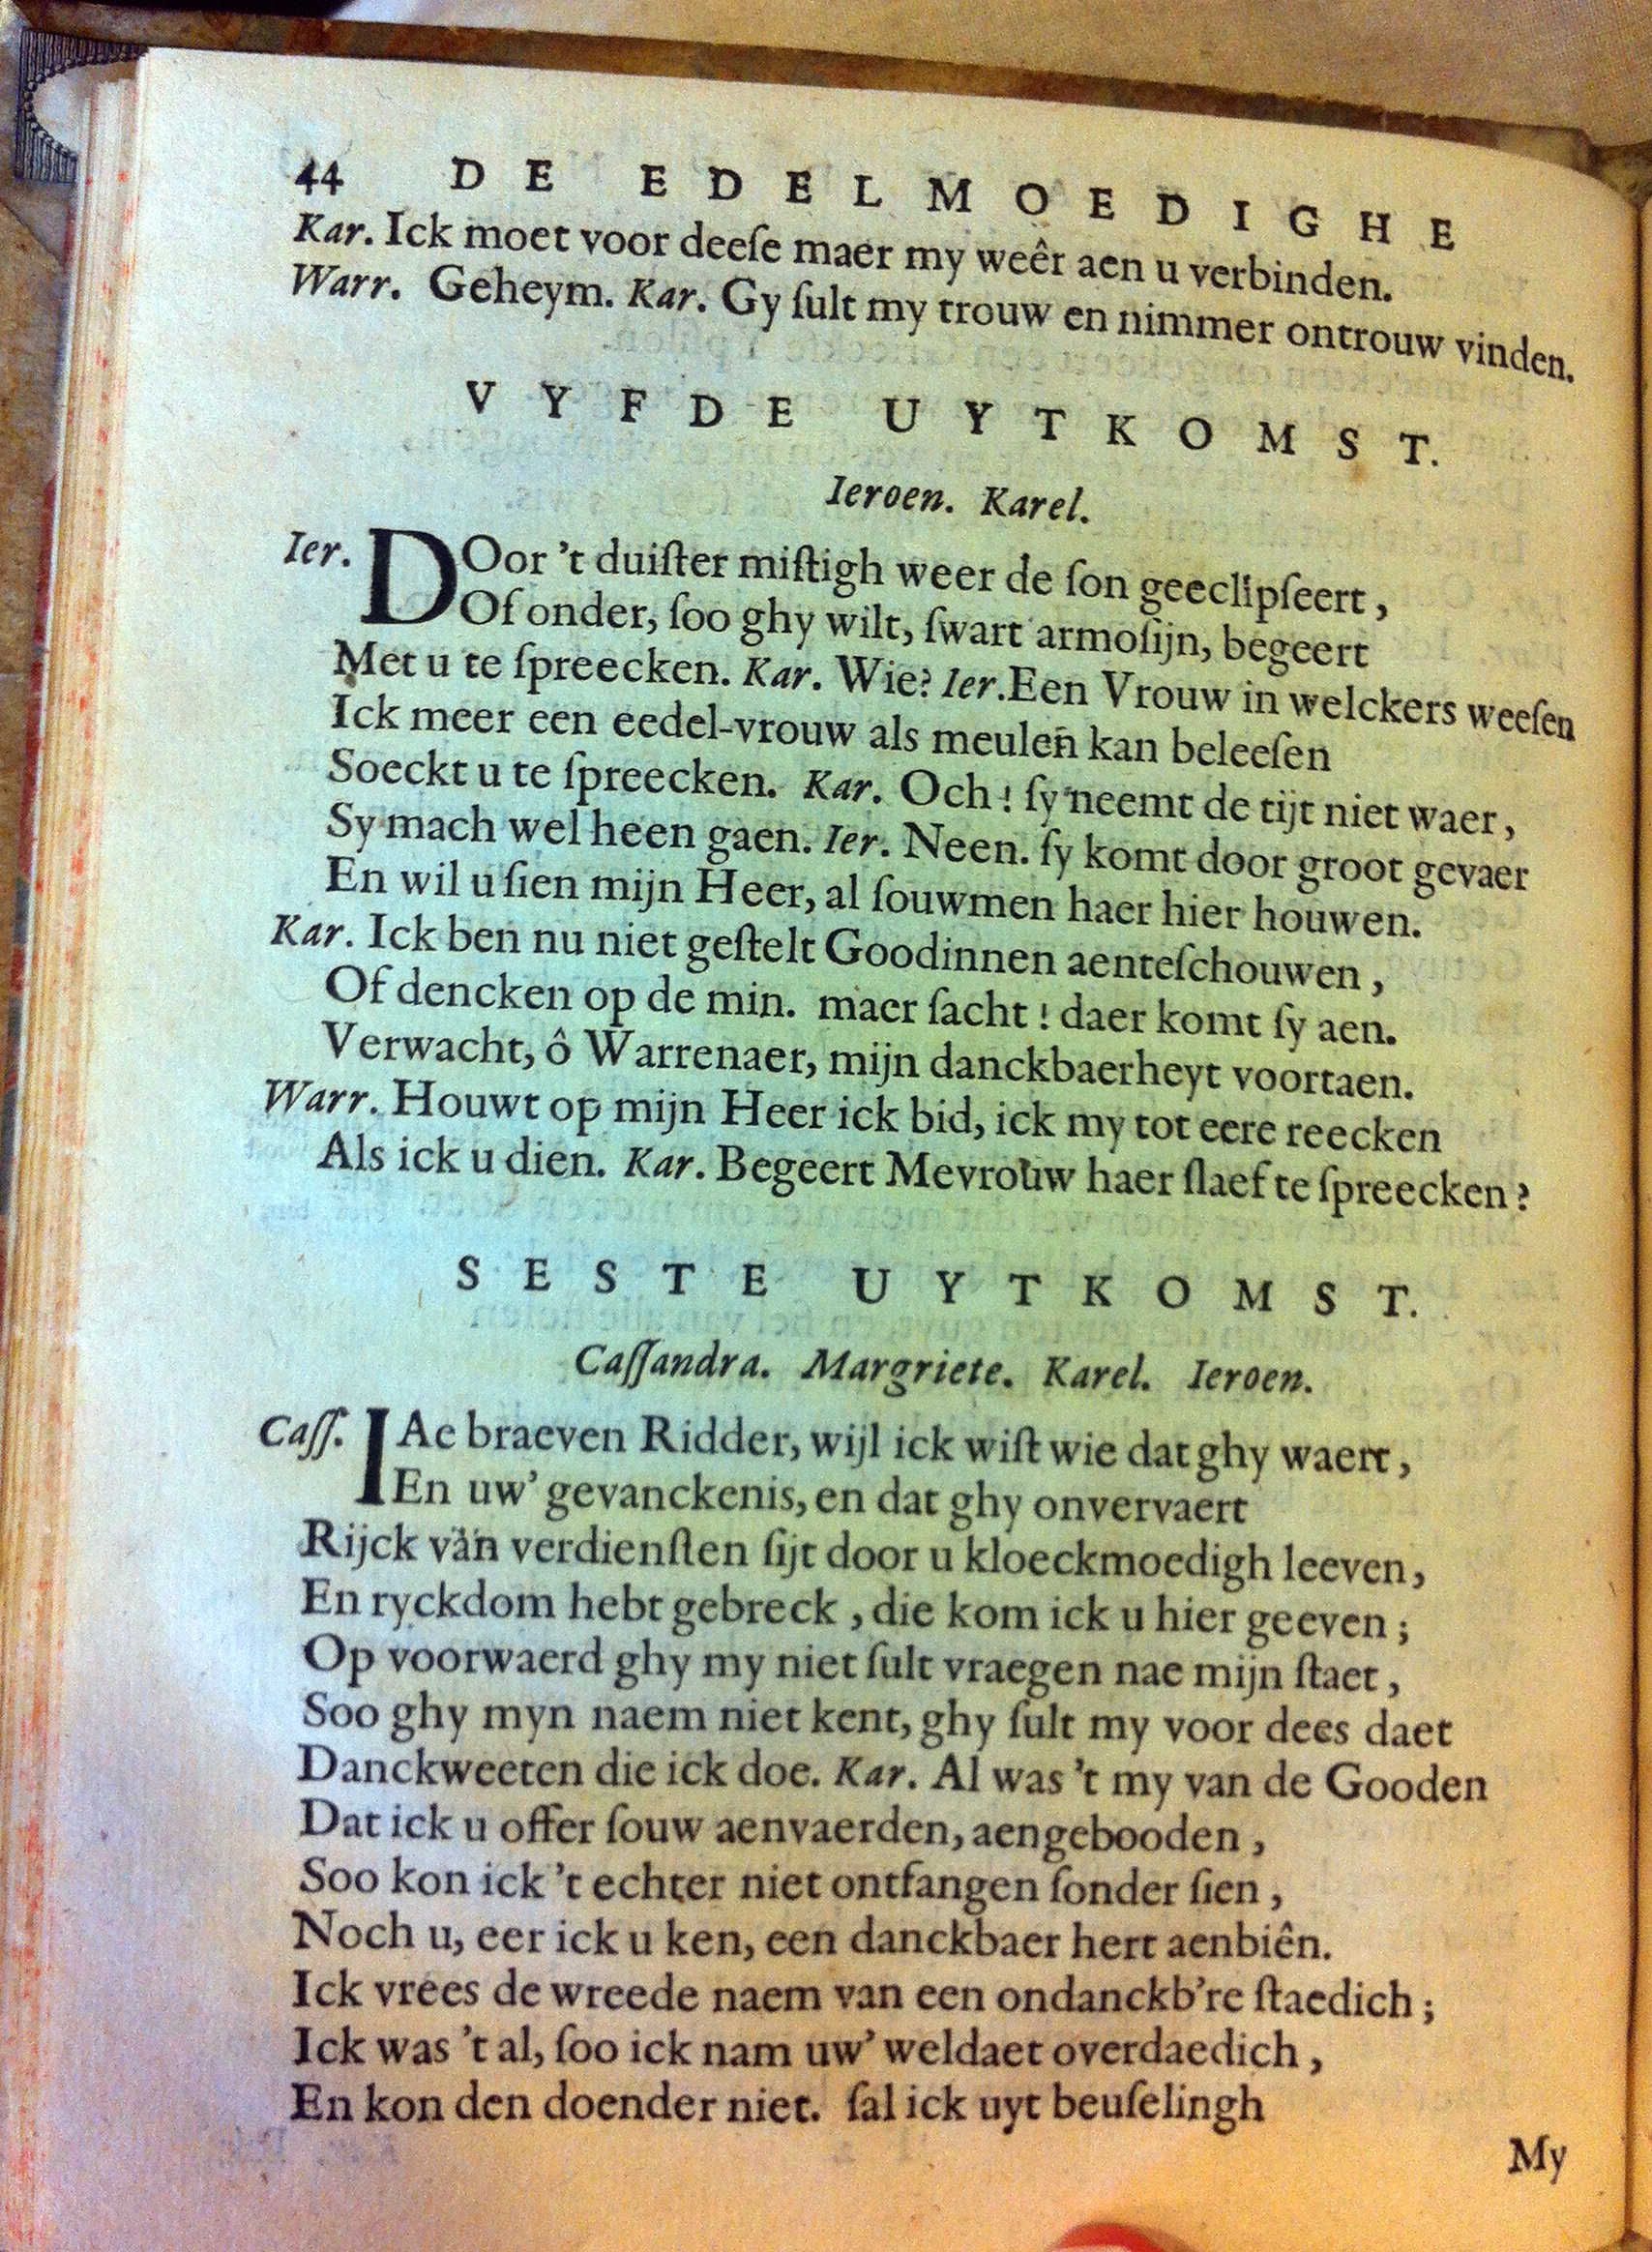 44 DE EDELMOEDIGHE
Kar. Ick moet voor deeſe maer my weêr aen u verbinden.
Warr. Geheym. Kar. Gy ſult my trouw en nimmer ontrouw vinden.
VYFDE UYTKOMST.
Ieroen. Karel.
Ier. DOor 't duiſter miſtigh weer de ſon geeclipſeert,
Of onder, ſoo ghy wilt, ſwart armoſijn, begeert
Met u te ſpreecken. Kar. Wie? Ier. Een Vrouw in welckers weeſen
Ick meer een eedel-vrouw als meulen kan beleeſen
Soeckt u te ſpreecken. Kar. Och! ſy neemt de tijt niet waer,
Sy mach wel heen gaen. Ier. Neen. ſy komt door groot gevaer
En wil u ſien mijn Heer, al ſouwmen haer hier houwen.
Kar. Ick ben nu niet geſtelt Goodinnen aenteſchouwen,
Of dencken op de min. maer ſacht! daer komt ſy aen.
Verwacht, ô Warrenaer, mijn danckbaerheyt voortaen.
Warr. Houwt op mijn Heer ick bid, ick my tot eere reecken
Als ick u dien. Kar. Begeert Mevrouw haer ſlaef te ſpreecken?
SESTE UYTKOMST.
Caſſandra. Margriete. Karel. Ieroen.
Caſſ. IAe braeven Ridder, wijl ick wiſt wie dat ghy waert,
En uw' gevanckenis, en dat ghy onvervaert
Rijck van verdienſten ſijt door u kloeckmoedigh leeven,
En ryckdom hebt gebreck, die kom ick u hier geeven;
Op voorwaerd ghy my niet ſult vraegen nae mijn ſtaet,
Soo ghy myn naem niet kent, ghy ſult my voor dees daet
Danckweeten die ick doe. Kar. Al was 't my van de Gooden
Dat ick u offer ſouw aenvaerden, aengebooden,
Soo kon ick 't echter niet ontfangen ſonder ſien,
Noch u, eer ick u ken, een danckbaer hert aenbiên.
Ick vrees de wreede naem van een ondanckb're ſtaedich;
Ick was 't al, ſoo ick nam uw' weldaet overdaedich,
En kon den doender niet. ſal ick uyt beuſelingh
My